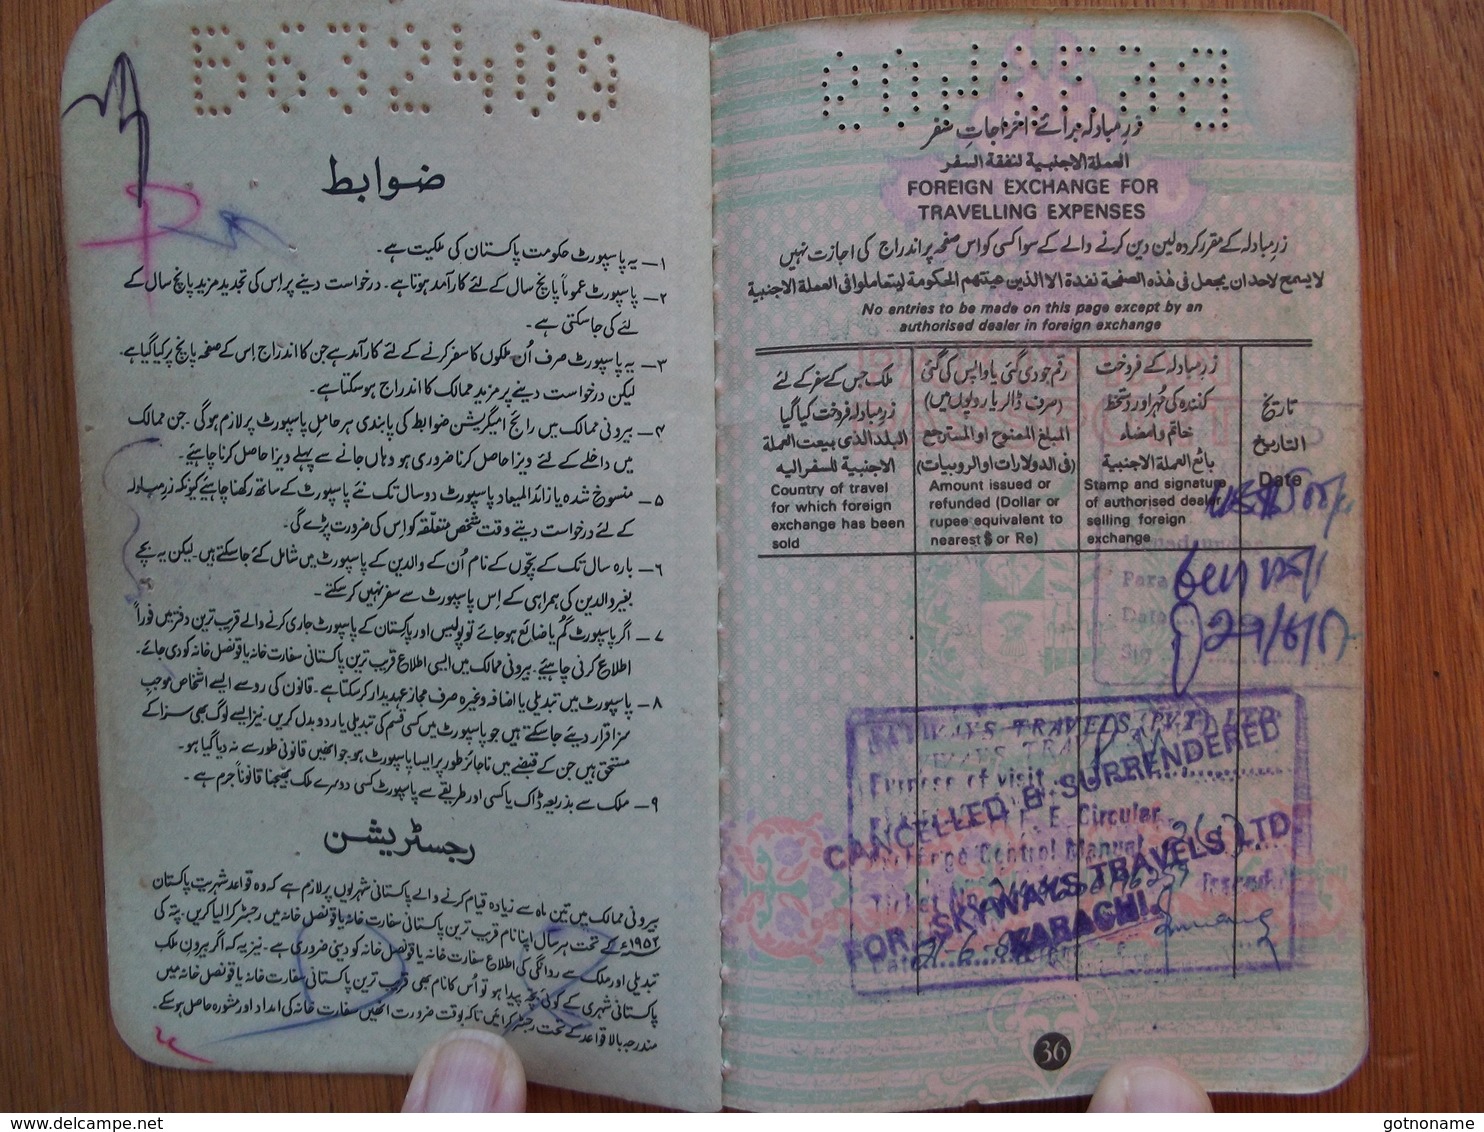 B632409
ضوابط
۱ــ یہ پاسپورٹ حکومت پاکستان کی ملکیت ہے۔
۲ــ پاسپورٹ عموماً پانچ سال کے لئے کارآمد ہوتا ہے۔ درخواست دینے پر اِس کی تجدید مزید پانچ سال کے
لئے کی جا سکتی ہے۔
۳ــ یہ پاسپورٹ صرف اُن ملکوں کا سفر کرنے کے لئے کارآمد ہے جن کا اندراج اِس کے صفحہ پانچ پر کیا گیا ہے۔
لیکن درخواست دینے پر مزید ممالک کا اندراج ہو سکتا ہے۔
۴ــ بیرونی ممالک میں رائج امیگریشن ضوابط کی پابندی ہر حاملِ پاسپورٹ پر لازم ہوگی۔ جن ممالک
میں داخلے کے لئے ویزا حاصل کرنا ضروری ہو وہاں جانے سے پہلے ویزا حاصل کرنا چاہیئے۔
۵ــ منسوخ شدہ یا زائد المیعاد پاسپورٹ دو سال تک نئے پاسپورٹ کے ساتھ رکھنا چاہیئے کیونکہ زرِمبادلہ
کے لئے درخواست دیتے وقت شخص متعلقہ کو اِس کی ضرورت پڑے گی۔
۶ــ بارہ سال تک کے بچّوں کے نام اُن کے والدین کے پاسپورٹ میں شامل کئے جا سکتے ہیں۔ لیکن یہ بچے
بغیر والدین کی ہمراہی کے اِس پاسپورٹ سے سفر نہیں کر سکتے۔
۷ــ اگر پاسپورٹ گم یا ضائع ہو جائے تو پولیس اور پاکستان کے پاسپورٹ جاری کرنے والے قریب ترین دفتر میں فوراً
اطلاع کرنی چاہیئے۔ بیرونی ممالک میں ایسی اطلاع قریب ترین پاکستانی سفارت خانہ یا قونصل خانہ کو دی جائے۔
۸ــ پاسپورٹ میں تبدیلی یا اضافہ وغیرہ صرف مجاز عہدیدار کر سکتا ہے۔ قانون کی رو سے ایسے اشخاص موجب
سزا قرار دیئے جا سکتے ہیں جو پاسپورٹ میں کسی قسم کی تبدیلی یا ردوبدل کریں۔ نیز ایسے لوگ بھی سزا کے
مستحق ہیں جن کے قبضے میں ناجائز طور پر ایسا پاسپورٹ ہو جو انھیں قانونی طور سے نہ دیا گیا ہو۔
۹ــ ملک سے بذریعہ ڈاک یا کسی اور طریقے سے پاسپورٹ کسی دوسرے ملک بھیجنا قانوناً جرم ہے۔
رجسٹریشن
بیرونی ممالک میں تین ماہ سے زیادہ قیام کرنے والے پاکستانی شہریوں پر لازم ہے کہ وہ قواعد شہریت پاکستان
۱۹۵۲ء کے تحت ہر سال اپنا نام قریب ترین پاکستانی سفارت خانہ یا قونصل خانہ میں رجسٹر کرا لیا کریں۔ پتہ کی
تبدیلی اور ملک سے روانگی کی اطلاع سفارت خانہ یا قونصل خانہ کو دینی ضروری ہے۔ نیز یہ کہ اگر بیرونِ ملک
پاکستانی شہری کے کوئی بچہ پیدا ہو تو اُس کا نام بھی قریب ترین پاکستانی سفارت خانہ یا قونصل خانہ میں
مندرجہ بالا قواعد کے تحت رجسٹر کرائیں تاکہ بوقت ضرورت انھیں سفارت خانہ کی امداد اور مشورہ حاصل ہو سکے۔
زرِ مبادلہ برائے اخراجاتِ سفر
العملة الاجنبية لنفقة السفر
FOREIGN EXCHANGE FOR
TRAVELLING EXPENSES
زرِ مبادلہ کے مقرر کردہ لین دین کرنے والے کے سوا کسی کو اس صفحہ پر اندراج کی اجازت نہیں
لا يسمح لاحد ان يجعل فى هٰذه الصفحة نفدة الا الذين عينتهم الحكومة ليتعاملوا فى العملة الاجنبية
No entries to be made on this page except by an
authorised dealer in foreign exchange
ملک جس کے سفر کے لئے
زرِ مبادلہ فروخت کیا گیا
البلد الذى بيعت العملة
الاجنبية للسفر اليه
Country of travel
for which foreign
exchange has been
sold
رقم جو دی گئی یا واپس کی گئی
(صرف ڈالر یا روپوں میں)
المبلغ الممنوح او المسترجع
(فى الدولارات او الروبيات)
Amount issued or
refunded (Dollar or
rupee equivalent to
nearest $ or Re)
زرِ مبادلہ کے فروخت
کنندہ کی مُہر اور دستخط
خاتم وامضاء
بائع العملة الاجنبية
Stamp and signature
of authorised dealer
selling foreign
exchange
تاریخ
التاريخ
Date
Para
Date
Sig
29/6/
SKYWAYS TRAVELS (PVT) LTD
Purpose of visit
E. Circular
Exchange Control Manual
Ticket No.
Date
CANCELLED & SURRENDERED
FOR, SKYWAYS TRAVELS LTD
KARACHI.
36
delcampe.net
gotnoname